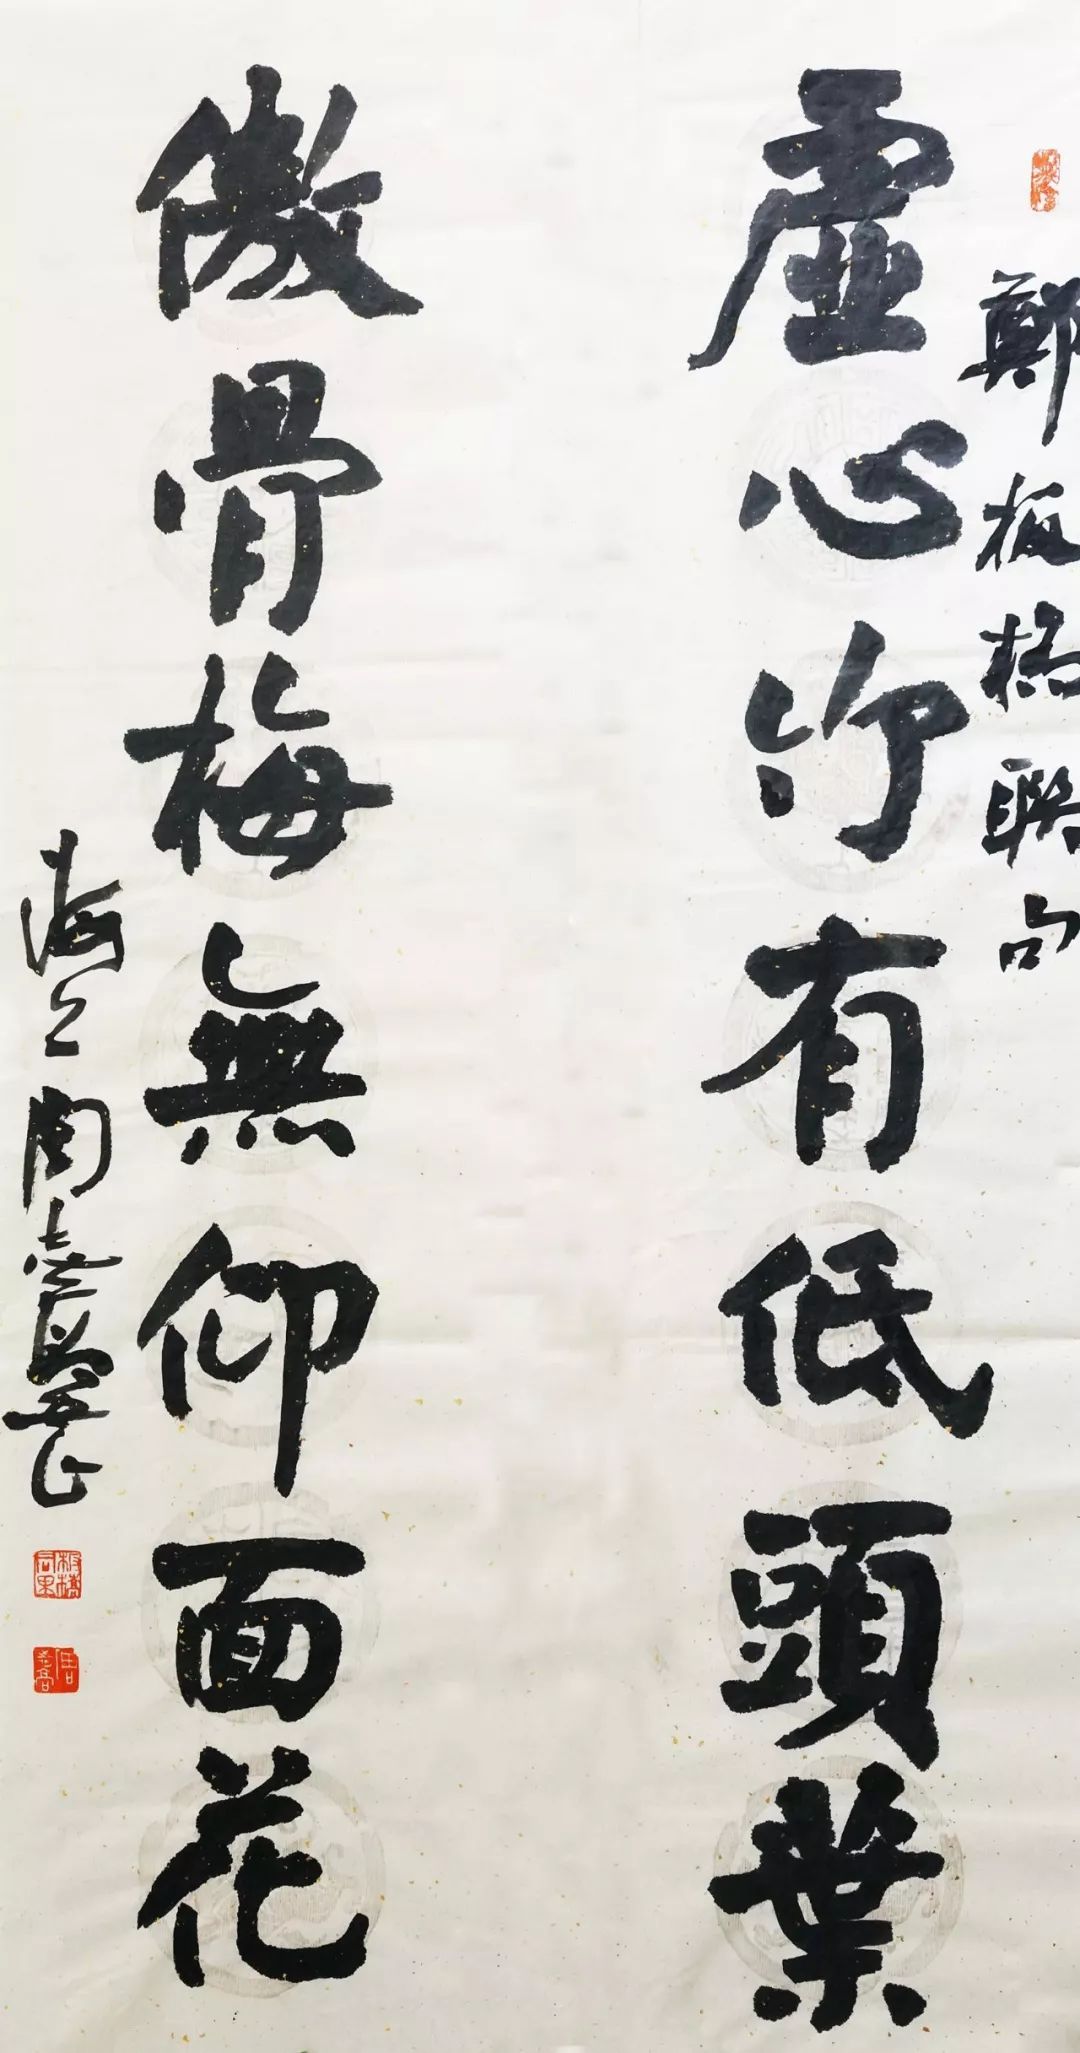 鄭板橋聯句
虛心竹有低頭葉
傲骨梅無仰面花
海上周